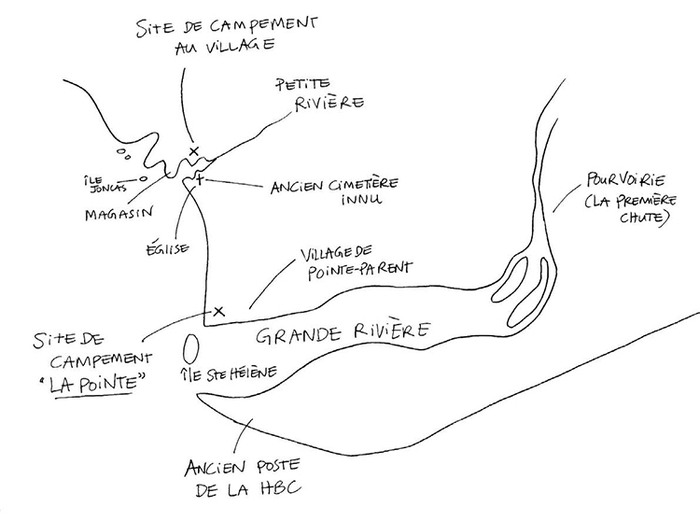 SITE DE CAMPEMENT
AU VILLAGE
PETITE
RIVIÈRE
ÎLE
JONCAS
MAGASIN
ANCIEN CIMETIÈRE
INNU
ÉGLISE
POURVOIRIE
(LA PREMIÈRE
CHUTE)
VILLAGE DE
POINTE-PARENT
GRANDE RIVIÈRE
SITE DE
CAMPEMENT
"LA POINTE"
ÎLE STE HÉLÈNE
ANCIEN POSTE
DE LA HBC